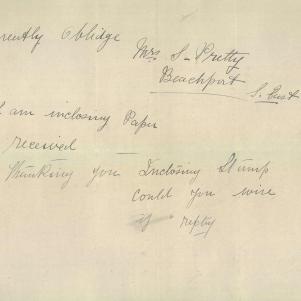 reently Oblidge
Mrs S-Pretty
Beachport
S. East
I am inclosing Paper
received
Thanking you Inclosing Stamp
could you wire
if reply